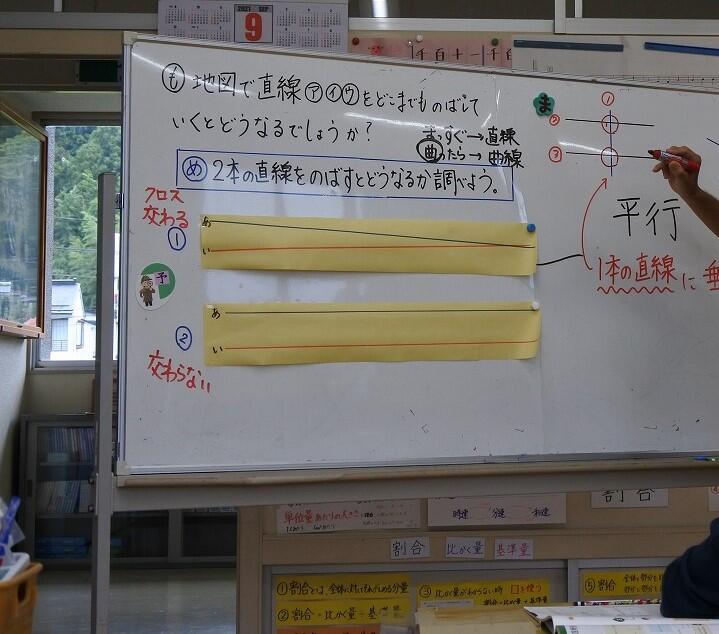 2021 SEP
9
千百十一千百
も 地図で直線アイウをどこまでものばして
いくとどうなるでしょうか?
まっすぐ→直線
曲ったら→曲線
め 2本の直線をのばすとどうなるか調べよう。
クロス
交わる
①
あ
い
予
②
あ
い
交わらない
ま
①
②
③
平行
1本の直線に垂
単位量あたりの大きさ
時速 分速 秒速
割合
割合 比かく量 基準量
①割合とは、全体に対してもとめる分量
②割合=比かく量÷基準量
③比かく量がわからない時 口を使う
⑤割合